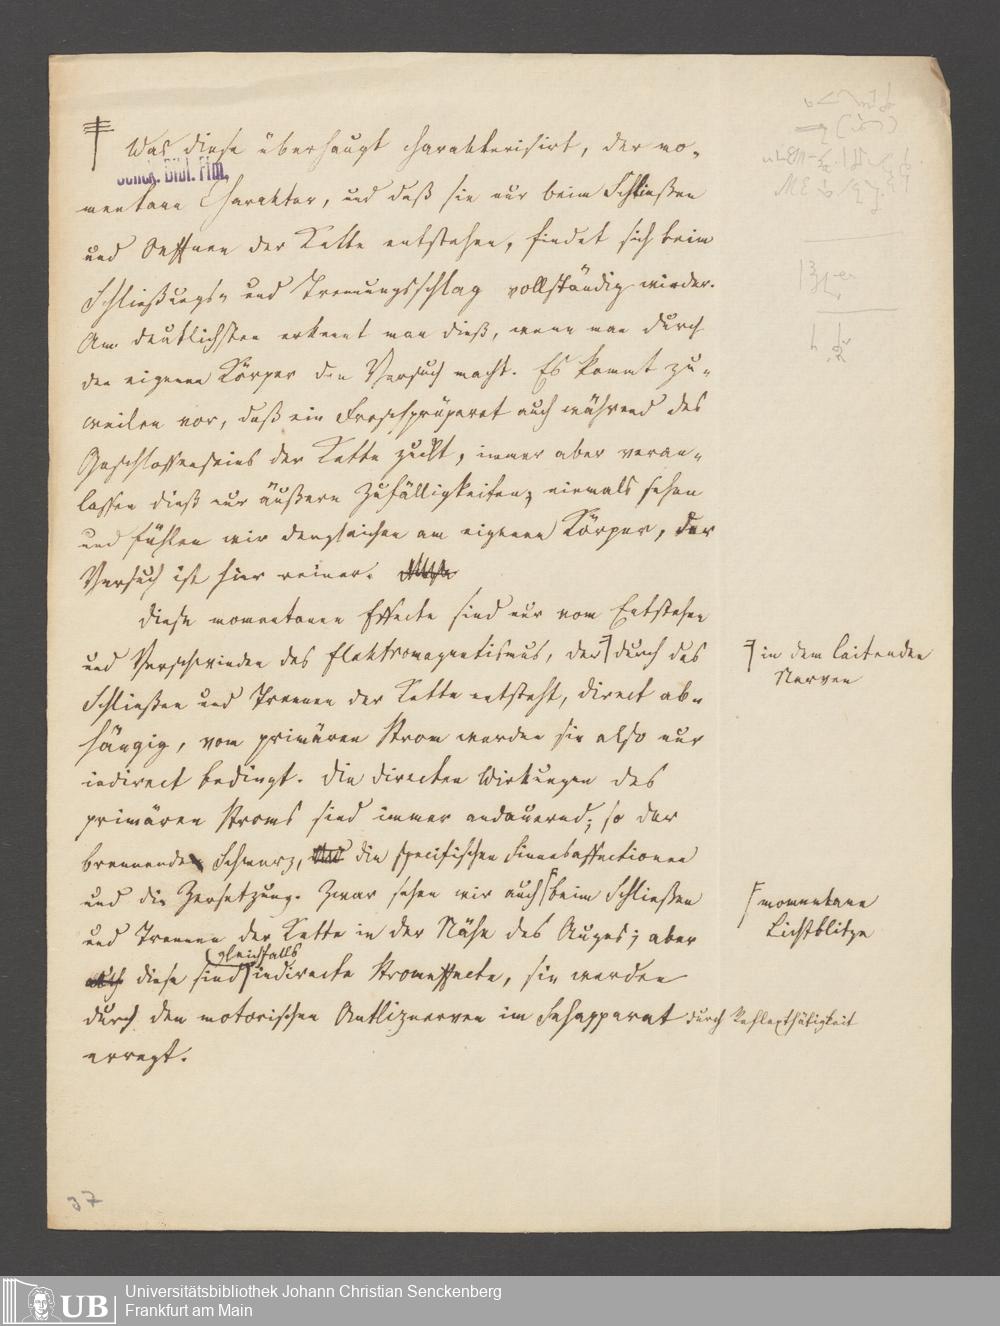 Was diese überhaupt charakterisirt, der mo-
Senck. Bibl. Ffm.
mentane Charakter, und daß sie nur beim Schließen
und Oeffnen der Kette entstehen, findet sich beim
Schließungs- und Trennungsschlag vollständig wieder.
Am deutlichsten erkennt man dieß, wenn man durch
den eigenen Körper den Versuch macht. Es kommt zu-
weilen vor, daß ein Froschpräparat auch während des
Geschlossenseins der Kette zuckt, immer aber veran-
lassen dieß nur äußere Zufälligkeiten; niemals sehen
und fühlen wir dergleichen am eigenen Körper, der
Versuch ist hier reiner.
Diese momentanen Effecte sind nur vom Entstehen
und Verschwinden des Elektromagnetismus, der durch das
in dem leitenden
Nerven
Schließen und Trennen der Kette entsteht, direct ab-
hängig, vom primären Strom werden sie also nur
indirect bedingt. Die directen Wirkungen des
primären Stroms sind immer andauernd; so der
brennende Schmerz, die specifischen Sinnesaffectionen
und die Zersetzung. Zwar sehen wir auch beim Schließen
momentane
Lichtblitze
und Trennen der Kette in der Nähe des Auges; aber
gleichfalls
diese sind indirecte Stromeffecte, sie werden
durch den motorischen Antliznerven im Sehapparat durch Reflexthätigkeit
erregt.
37
UB
Universitätsbibliothek Johann Christian Senckenberg
Frankfurt am Main